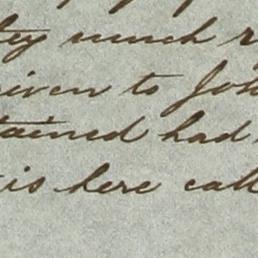 much
given to Joh
tained had
is here call